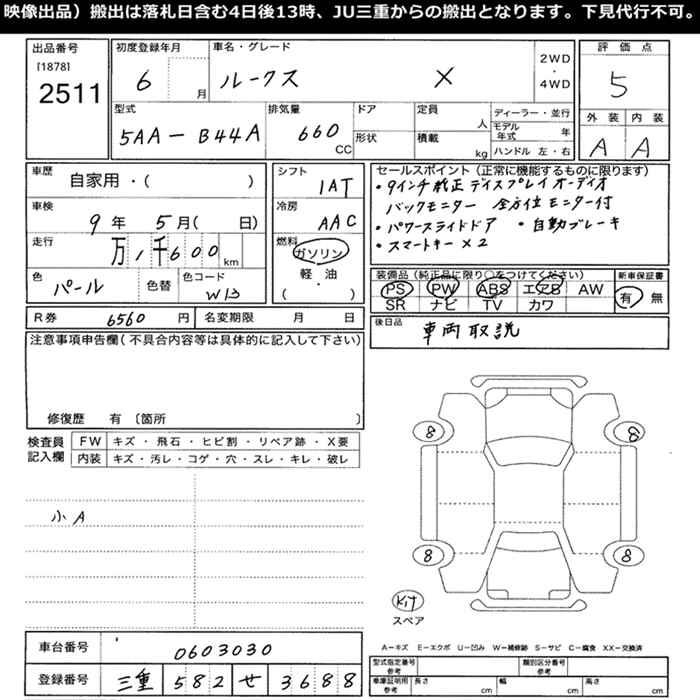 映像出品）搬出は落札日含む4日後13時、JU三重からの搬出となります。下見代行不可。
出品番号 初度登録年月 車名・グレード 2WD・4WD 評価点
[1878]
2511 6 月 ルークス X 5
型式 排気量 ドア 定員 人 ディーラー・並行 外装 内装
5AA-B44A 660 CC 形状 積載 kg モデル年式 年 A A
ハンドル 左・右
車歴 自家用・( ) シフト 1AT セールスポイント（正常に機能するものに限ります）
・9インチ純正ディスプレイオーディオ
車検 9年 5月( 日) 冷房 AAC バックモニター 全方位モニター付
・パワースライドドア ・自動ブレーキ
走行 万1千600km 燃料 ガソリン ・スマートキー×2
軽・油
・
( )
色 パール 色替 色コード W13
装備品（純正品に限り○をつけてください） 新車保証書
PS PW ABS エアB AW 有 無
SR ナビ TV カワ
R券 6560円 名変期限 月 日 後日品 車両取説
注意事項申告欄（不具合内容等は具体的に記入して下さい）
修復歴 有〔箇所 〕
検査員記入欄 FW キズ・飛石・ヒビ割・リペア跡・X要
内装 キズ・汚レ・コゲ・穴・スレ・キレ・破レ
小A
8 8
8 8
Kit
スペア
車台番号 0603030
登録番号 三重 582 せ 3688
A－キズ E－エクボ U－凹み W－補修跡 S－サビ C－腐食 XX－交換済
型式指定番号 参考 類別区分番号 参考
車庫証明用 参考 長さ cm 幅 cm 高さ cm